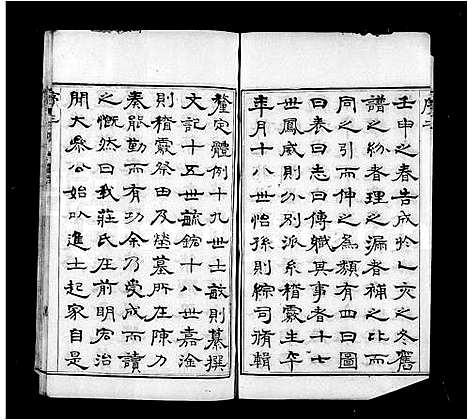 序二
壬申之春告成於乙亥之冬舊
譜之紛者理之漏者補之比而
同之引而伸之為類有四曰圖
曰表曰志曰傳職其事者十七
世鳳威則分別派系稽覈生卒
年月十八世怡孫則綜司脩輯
釐定體例十九世士敏則纂撰
文記十五世毓鋐十八世嘉淦
則稽覈祭田及塋墓所在陳力
奏能勤而有功余乃受成而讀
之慨然曰我莊氏在前明宏治
開大參公始以進士起家自是